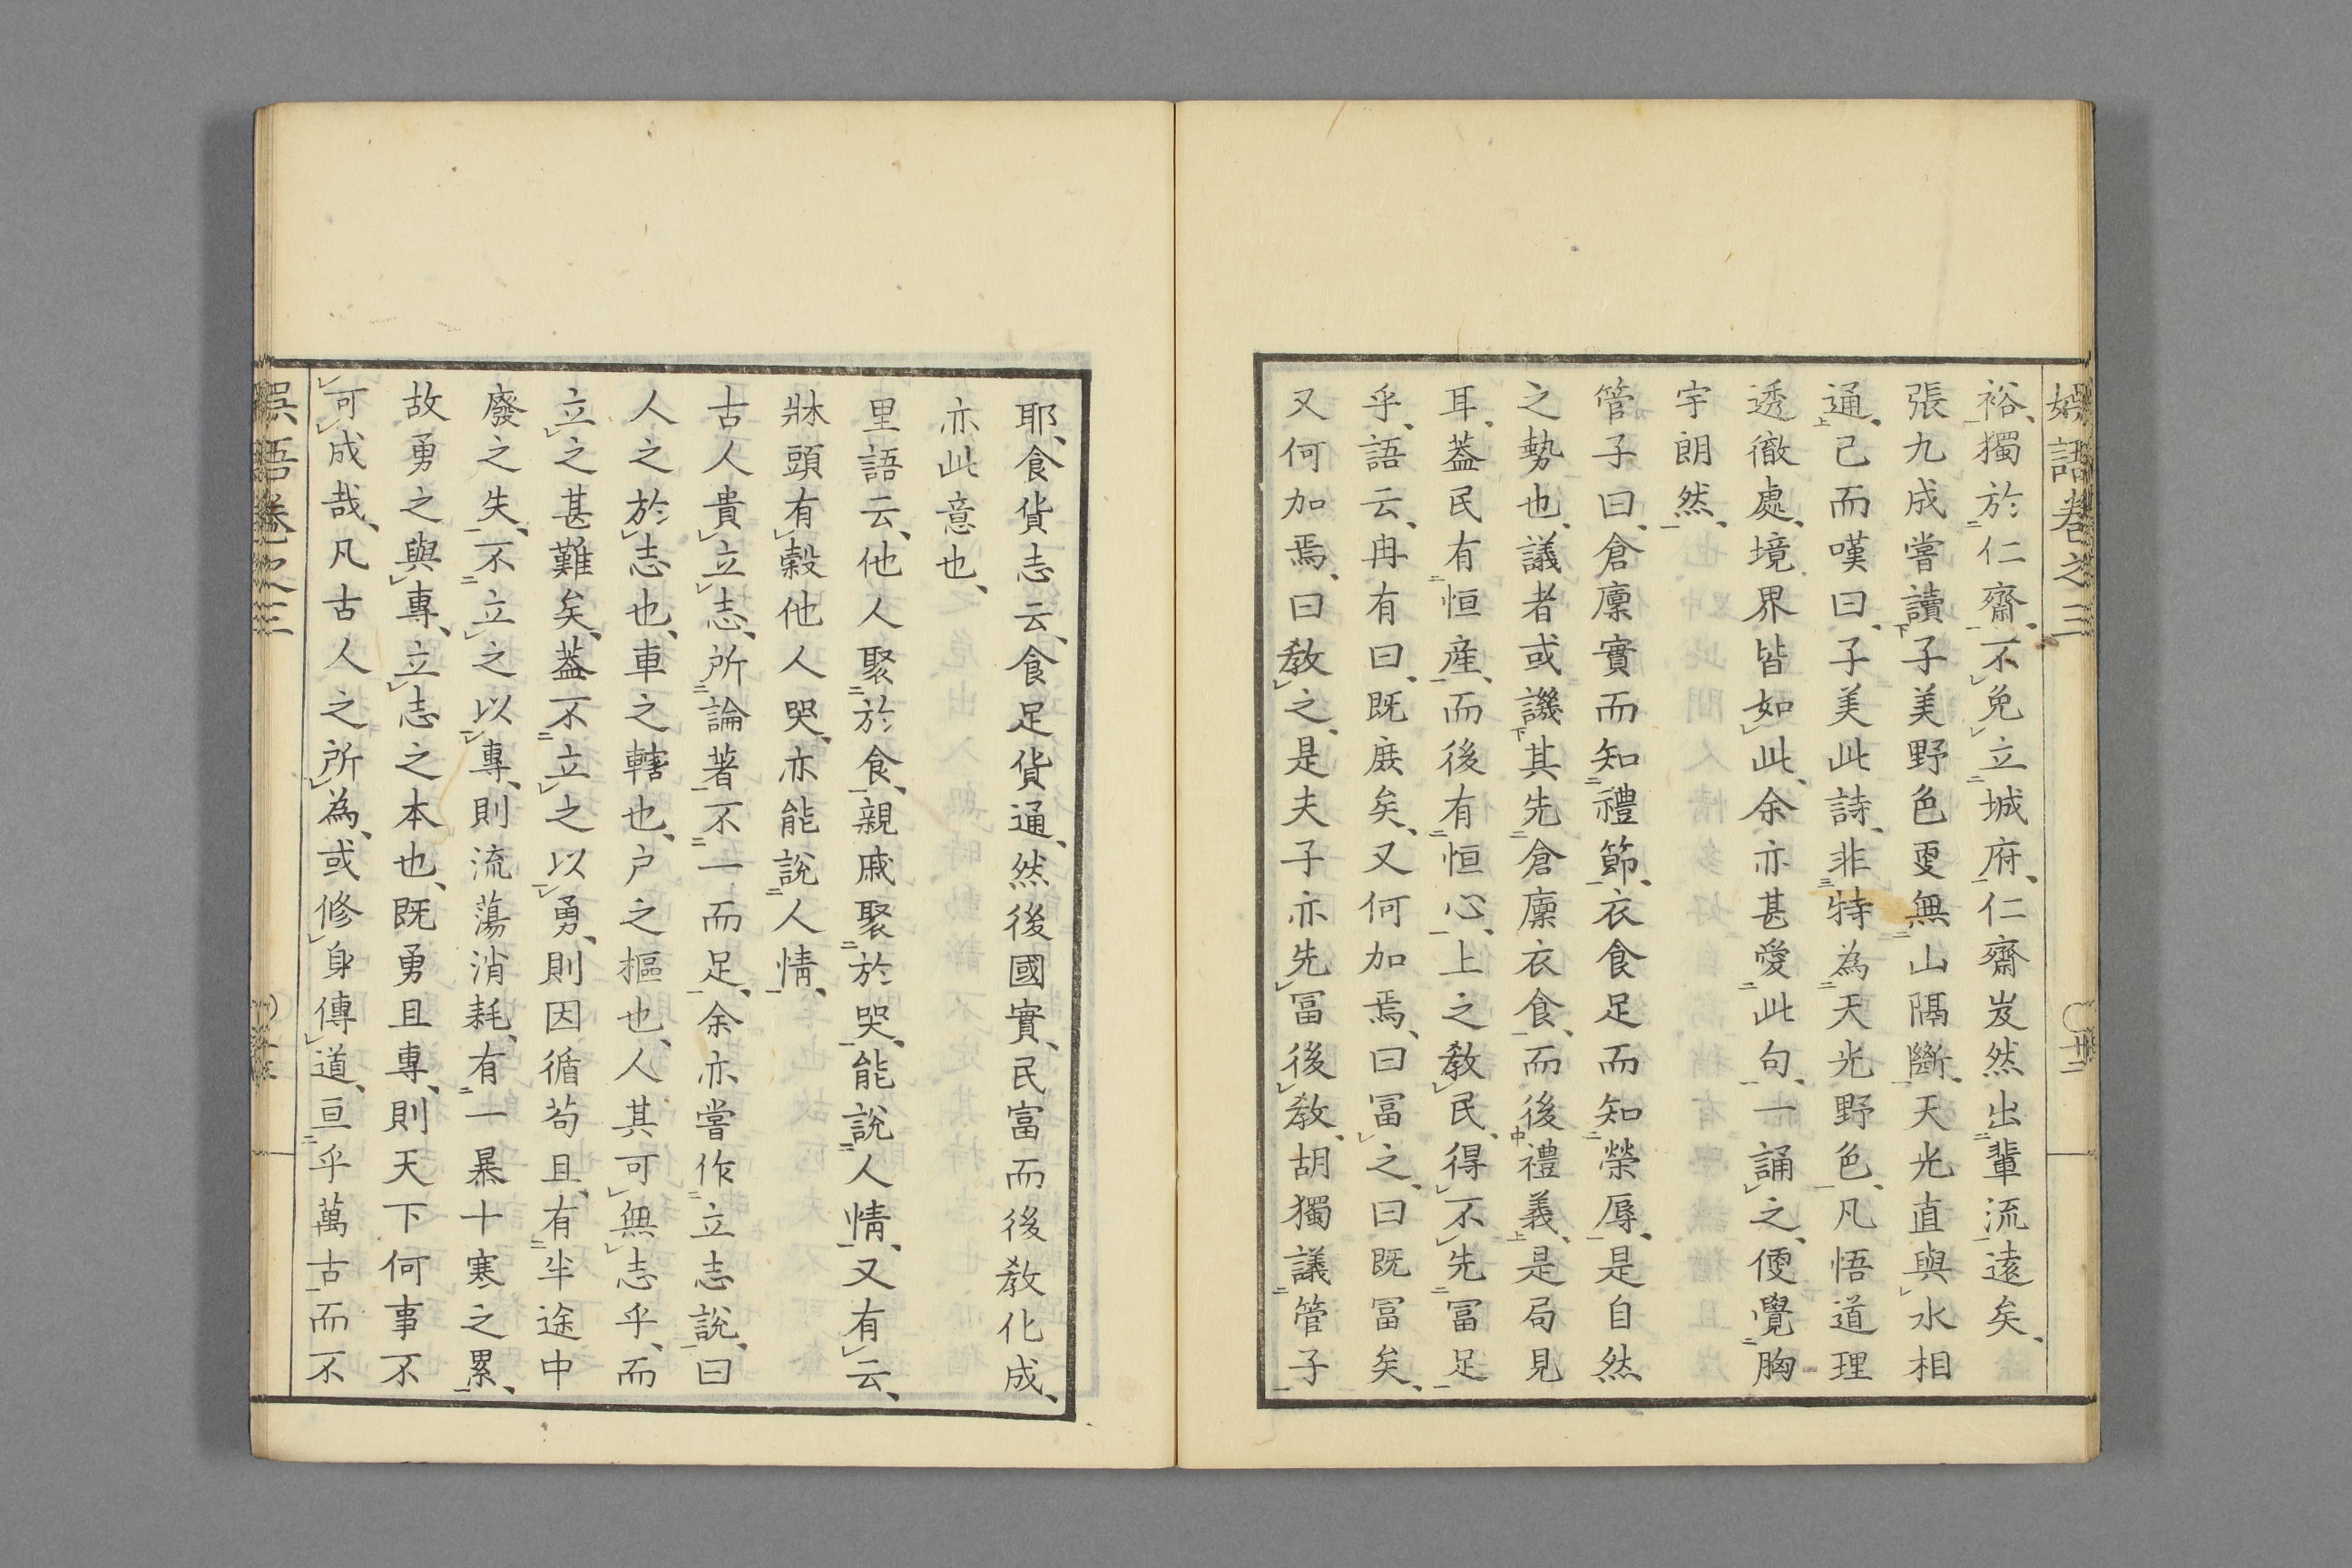 娯語卷之三
〇廿二
裕、獨於仁齋、不免立城府、仁齋岌然出輩流遠矣、
張九成嘗讀子美野色更無山隔斷、天光直與水相
通、己而嘆曰、子美此詩、非特為天光野色、凡悟道理
透徹處、境界皆如此、余亦甚愛此句、一誦之、便覺胸
宇朗然、
管子曰、倉廩實而知禮節、衣食足而知榮辱、是自然
之勢也、議者或譏其先倉廩衣食、而後禮義、是局見
耳、蓋民有恒産、而後有恒心、上之教民、得不先冨足
乎、語云、冉有曰、既庶矣、又何加焉、曰冨之、曰既冨矣、
又何加焉、曰教之、是夫子亦先冨後教、胡獨議管子
耶、食貨志云、食足貨通、然後國實、民富而後教化成、
亦此意也、
里語云、他人聚於食、親戚聚於哭、能說人情、又有云、
牀頭有穀他人哭、亦能說人情、
古人貴立志、所論著不一而足、余亦嘗作立志說、曰
人之於志也、車之轄也、户之樞也、人其可無志乎、而
立之甚難矣、蓋不立之以勇、則因循苟且、有半途中
廢之失、不立之以專、則流蕩消耗、有一暴十寒之累、
故勇之與專、立志之本也、既勇且專、則天下何事不
可成哉、凡古人之所為、或修身傳道、亘乎萬古而不
娯語卷之三